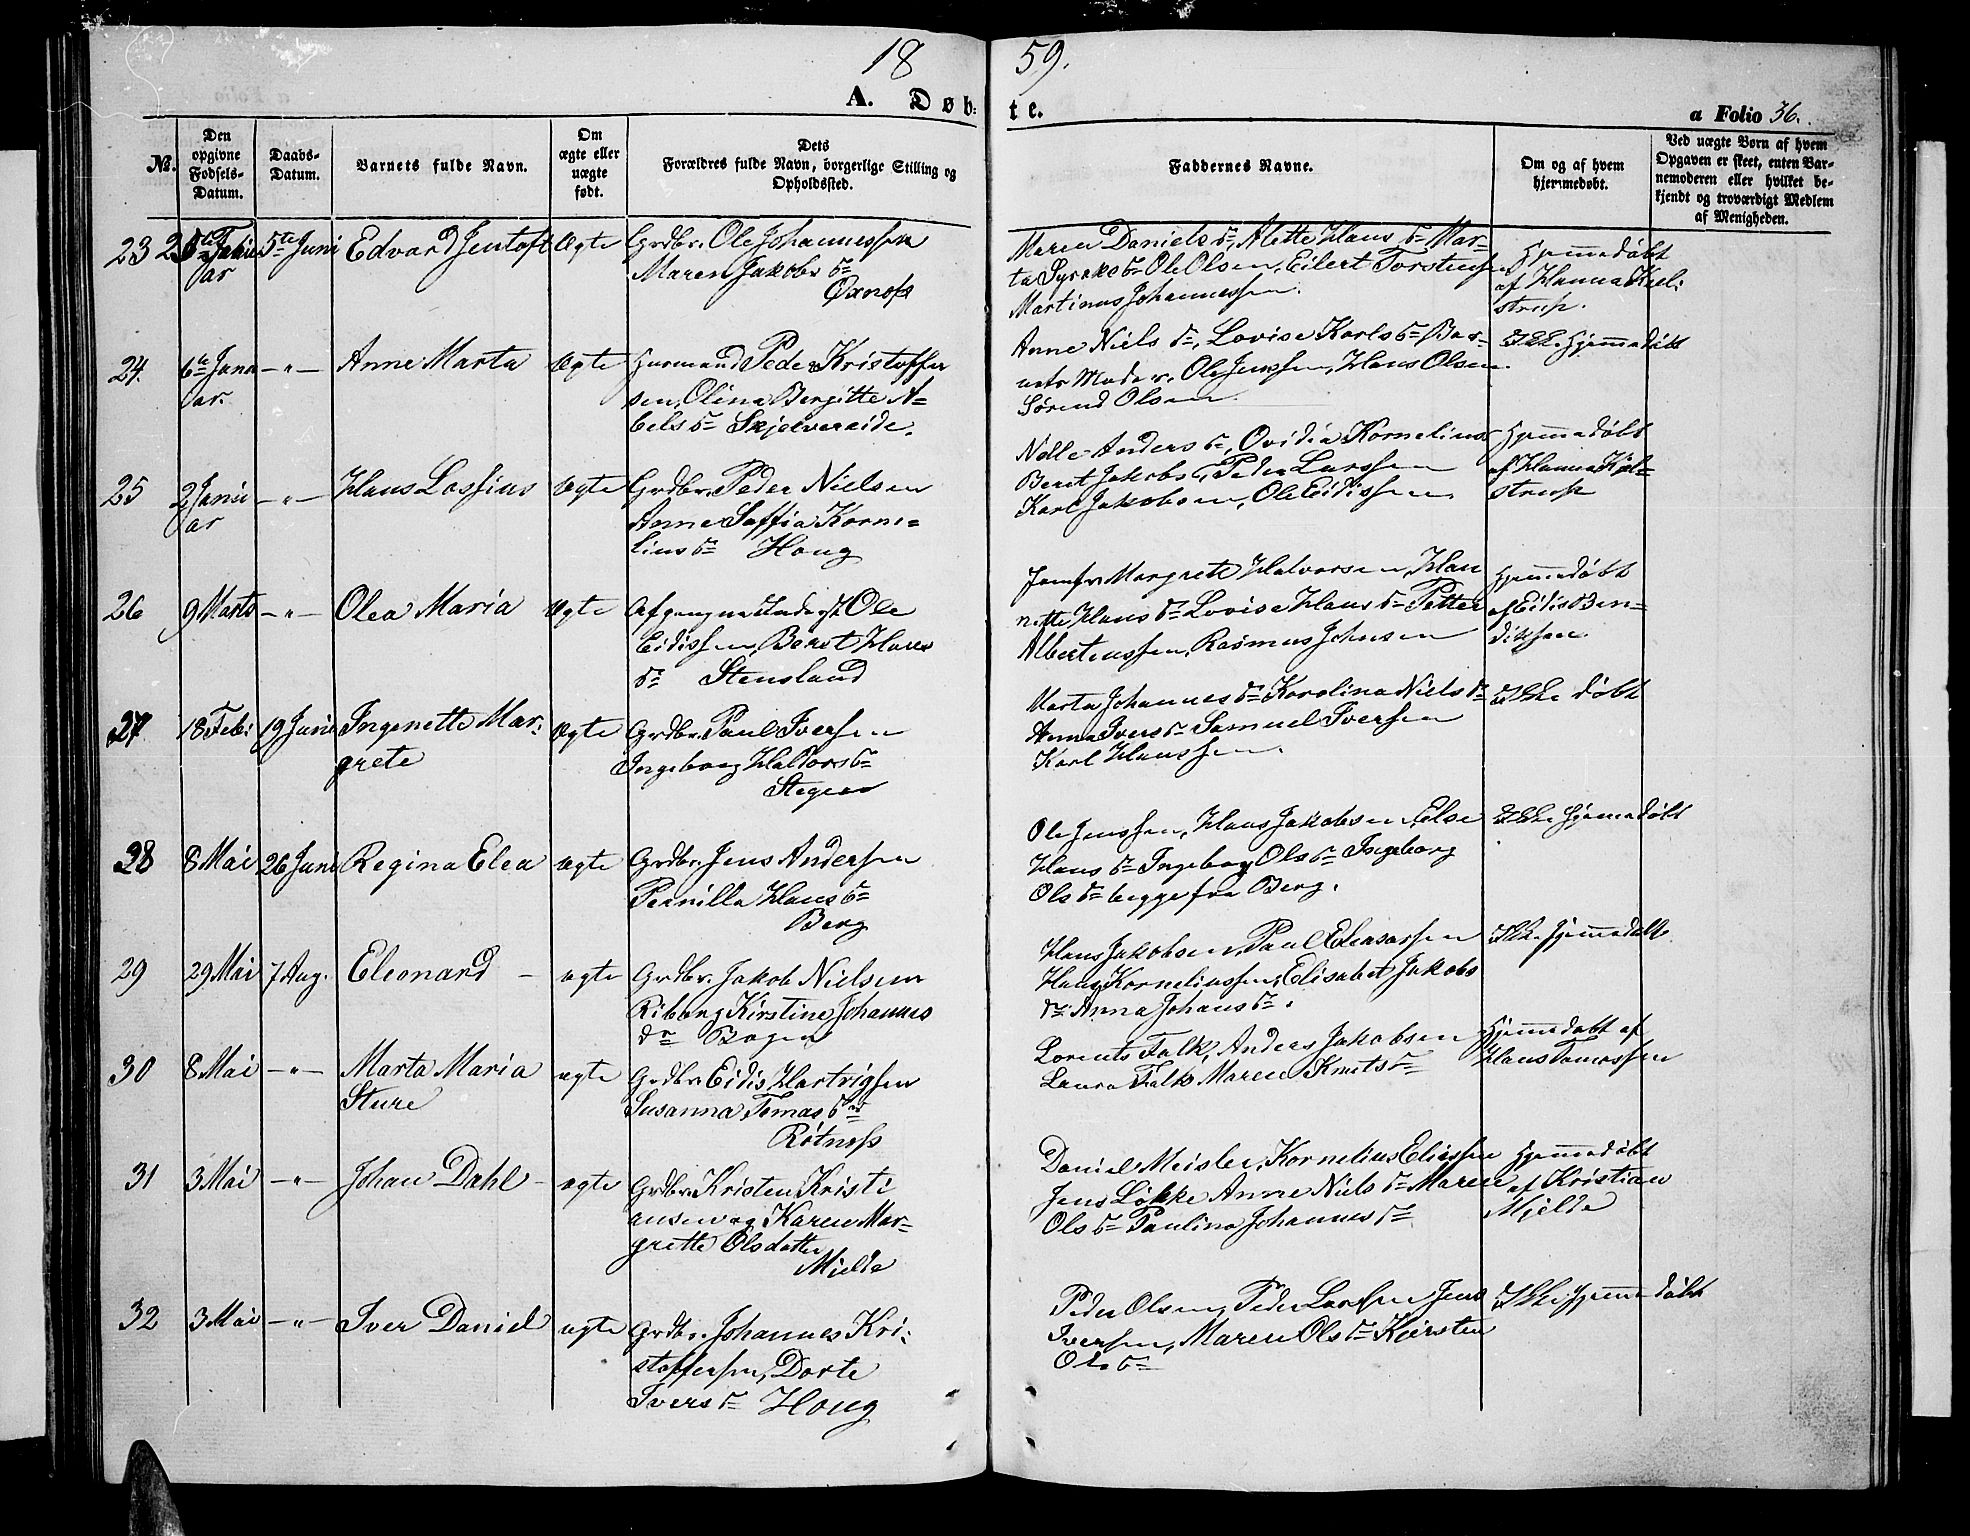 18 59.
A. Døb- te.
a Folio 36.
No. Den opgivne Fødsels-Datum. Daabs-Datum. Barnets fulde Navn. Om ægte eller uægte født. Dets Forældres fulde Navn, borgerlige Stilling og Opholdssted.
Faddernes Navne. Om og af hvem hjemmedøbt. Ved uægte Børn af hvem Opgaven er skeet, enten Barnemoderen eller hvilket bekjendt og troværdigt Medlem af Menigheden.
23 5te Juni Edvard Jentoft Ægte Grdbr. Ole Johannessen
ar Maren Jakobs Dr
Oxnes
Maren Daniels Dr, Alette Hans Dr Mar-
Ole Olsen, Eilert Torstensen
Martinus Johannessen.
Hjemmedøbt
af Hanna Kjel-
strup.
24. 6te Janu -"- Anne Marta Ægte Huusmand Peder Kristoffer
ar. sen, Olina Bergitte N-
bels Dr Skjelvereide.
Anne Niels Dr, Lovise Karls Dr Bar-
nets Moder, Ole Jenssen, Hans Olsen.
Sørend Olsen.
Ikke Hjemmedøbt
25 2 Janu -"- Hans Lossius Ægte Grdbr. Peder Nielsen
ar Anne Saffia Korne-
lius Dr Houg
Nelle Anders Dr, Ovidia Kornelius
Berit Jakobs Dr, Peder Larssen
Karl Jakobsen, Ole Eidissen
Hjemmedøbt
af Hanna Kjel-
strup
26 9 Marts -"- Olea Maria Ægte Ole
Eidissen, Berit Hans
Dr Stensland
Jomfr. Margrete Halvorsen, Han
nette Hans Dr Lovise Hans Dr Petter
Albertenssen, Rasmus Johnsen
Hjemmedøbt
af Eidis Ben-
diksen.
27 18 Feb: 19 Juni Ingenette Mar- Ægte Grdbr. Paul Iversen
grete Ingeborg Haldors Dr
Stegen
Marta Johannes Dr Karolina Niels Dr
Anna Ivers Dr Samuel Iversen
Karl Hanssen.
Ikke døbt
28 8 Mai 26 Juni Regina Elea ægte Grdbr. Jens Andersen
Pernilla Hans Dr
Berg
Ole Jenssen, Hans Jakobsen, Else
Hans Dr Ingeborg Ols Dr Ingeborg
Ols Dr begge fra Berg.
Ikke Hjemmedøbt
29 29 Mai 7 Aug. Eleonard - ægte Grdbr. Jakob Nielsen
Riborg Kirstine Johannes
dr Bogen
Hans Jakobsen, Paul Eleasarssen
Hans Korneliussen, Elisabet Jakobs
Dr Anna Johans Dr.
Ikke Hjemmedøbt
30 8 Mai -"- Marta Maria ægte Grdbr. Eidis Hartvigsen
Sture Susanna Tomas Dr
Røtness
Lorents Falk, Anders Jakobsen
Laura Falk Maren Knuts Dr
Hjemmedøbt af
Hans Tomassen
31 3 Mai -"- Johan Dahl - ægte Grdbr. Kristen Kristi
ansen og Karen Mar-
grette Olsdatter
Mjelde
Daniel Meisler, Kornelius Eliassen
Jens Løkke Anne Niels Dr Maren
Ols Dr Paulina Johannes Dr
Hjemmedøbt
af Kristian
Mjelde
32 3 Mai -"- Iver Daniel ægte Grdbr. Johannes Kri-
stoffersen, Dorte
Ivers Dr Houg
Peder Olsen, Peder Larssen Jens
Iversen, Maren Ols Dr Kiersten
Ols Dr
Ikke Hjemmedøbt